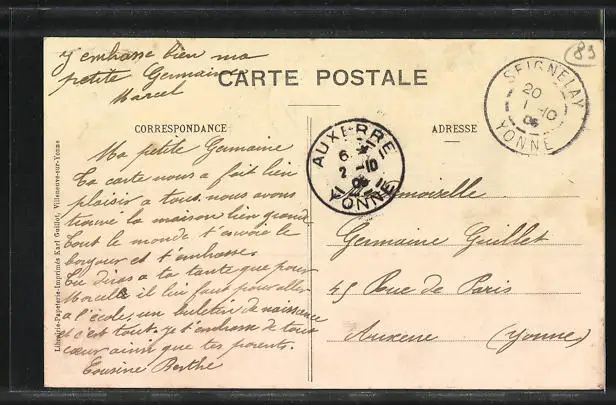 J'embrasse bien ma
petite Germaine
Marcel
CARTE POSTALE
CORRESPONDANCE
ADRESSE
Ma petite Germaine
Ta carte nous a fait bien
plaisir a tous, nous avons
trouvé la maison bien grande
tout le monde t'envoie le
bonjour et t'embrasse.
Tu diras a ta tante que pour
Marcelle il lui faut pour aller
a l'école, un buletin de naissance
et c'est tout. je t'embrasse de tout
cœur ainsi que tes parents.
Cousine Berthe
moiselle
Germaine Guillet
45 Rue de Paris
Auxerre (Yonne)
AUXERRE
6
2 -10
YONNE
SEIGNELAY
20
1 -10
YONNE
89
Librairie-Papeterie-Imprimés Karl Guillot, Villeneuve-sur-Yonne